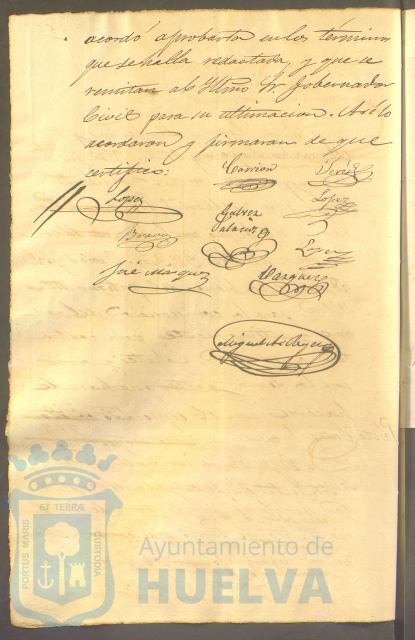 acordó aprobarla en los términos
que se halla redactada, y que se
remitan al Iltmo Sr. Gobernador
Civil para su ultimacion. Asi lo
acordaron y firmaran de que
certifico:
Carrion
Lopez
Lopez
Galvez
Palacios
Bravo
Lopez
José Marquez
Vazquez
Miguel
PORTUS MARIS
ET TERRÆ
CUSTODIA
Ayuntamiento de
HUELVA